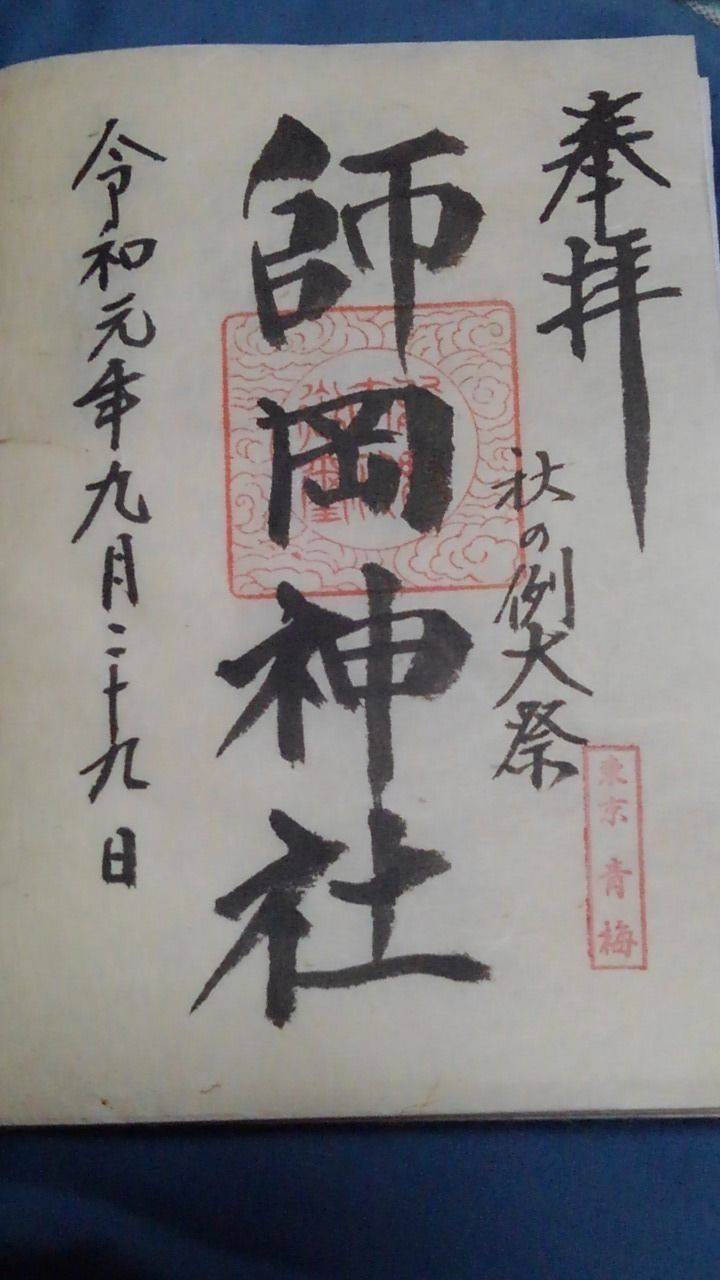 奉拝
秋の例大祭
東京 青梅
師岡神社
令和元年九月二十九日